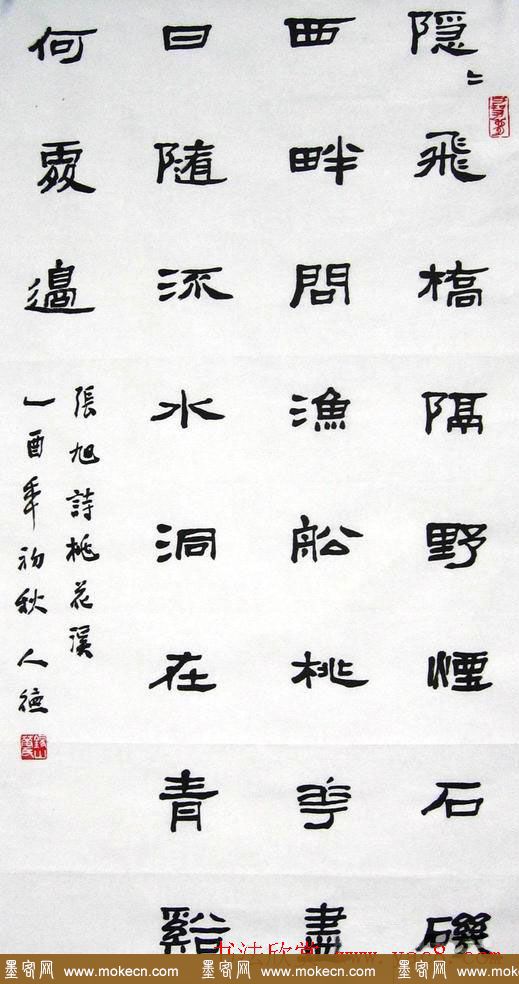 隐〻飛橋隔野煙石磯
西畔問漁船桃華盡
日随流水洞在青谿
何處邊
張旭詩桃花溪
乙酉年初秋 人德
书法欣赏 www.yac8.com
墨客网 www.mokecn.com 墨客网 www.mokecn.com 墨客网 www.mokecn.com